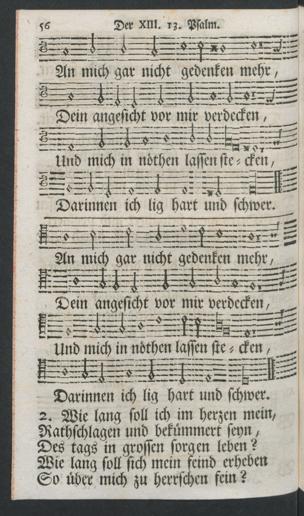 56 Der XIII. 13. Psalm.
An mich gar nicht gedenken mehr,
Dein angesicht vor mir verdecken,
Und mich in nöthen lassen ste-cken,
Darinnen ich lig hart und schwer.
An mich gar nicht gedenken mehr,
Dein angesicht vor mir verdecken,
Und mich in nöthen lassen ste-cken,
Darinnen ich lig hart und schwer.
2. Wie lang soll ich im herzen mein,
Rathschlagen und bekümmert seyn,
Des tags in grossen sorgen leben?
Wie lang soll sich mein feind erheben
So über mich zu herrschen fein?